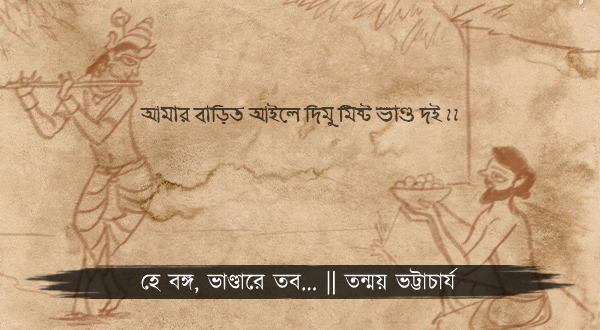 আমার বাড়িত আইলে দিমু মিষ্ট ভাণ্ড দই ।।
হে বঙ্গ, ভাণ্ডারে তব... || তন্ময় ভট্টাচার্য